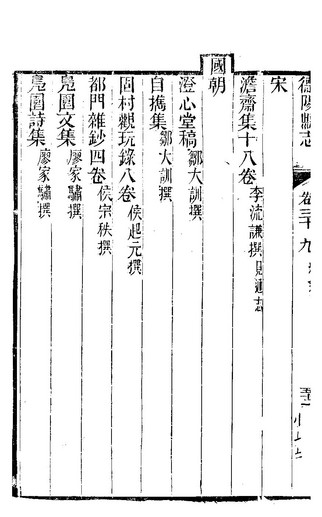 德陽縣志 卷三十九
宋
澹齋集十八卷 李流謙撰 見通志
國朝
澄心堂稿 鄒大訓撰
自携集 鄒大訓撰
固村觀玩錄八卷 侯起元撰
都門雜鈔四卷 侯宗秩撰
鳧園文集 廖家驌撰
鳧園詩集 廖家驌撰